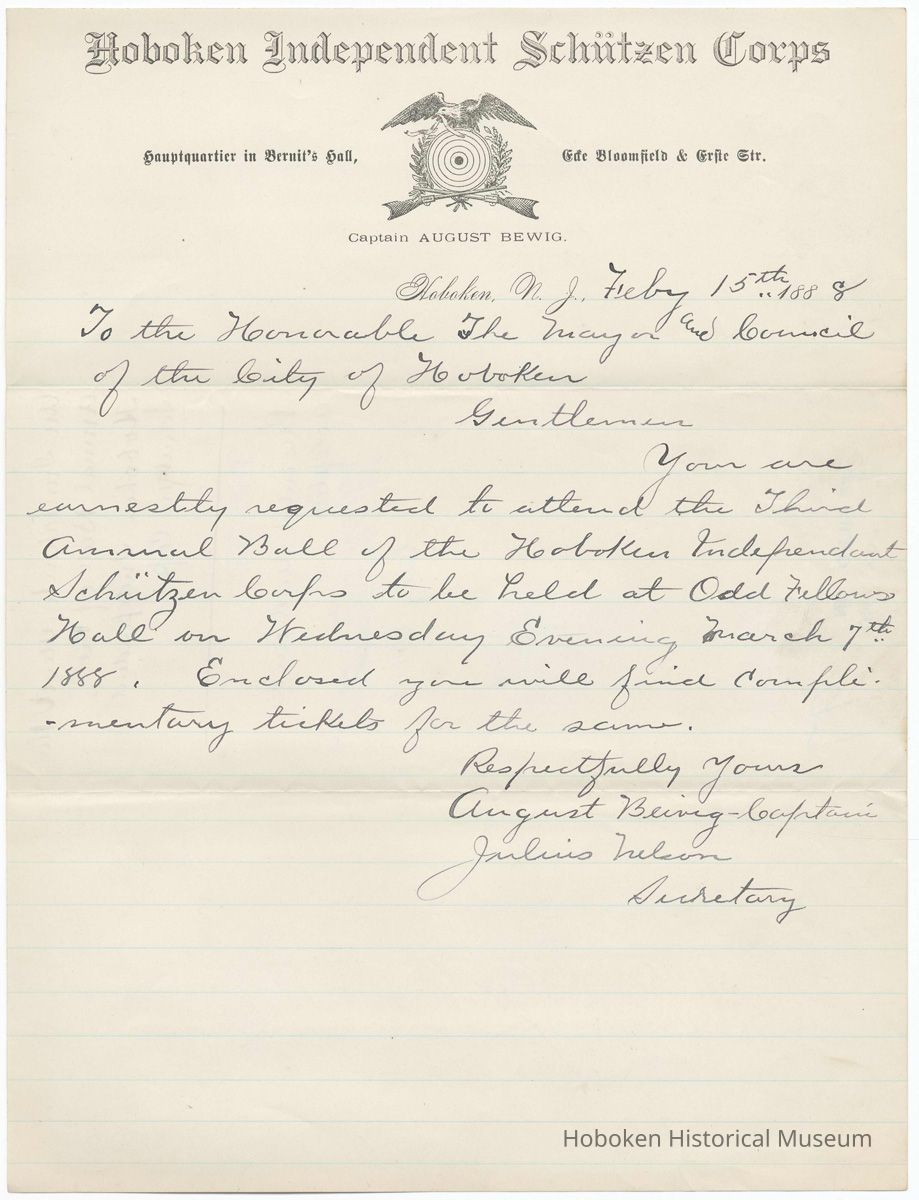 Hoboken Independent Schützen Corps
Hauptquartier in Bernit's Hall, Ecke Bloomfield & Erste Str.
Captain AUGUST BEWIG.
Hoboken, N. J., Feby 15th 1888
To the Honorable The Mayor and Council
of the City of Hoboken
Gentlemen
Your are
earnestly requested to attend the Third
Annual Ball of the Hoboken Independant
Schützen Corps to be held at Odd Fellows
Hall on Wednesday Evening March 7th
1888. Enclosed you will find Compli-
-mentary tickets for the same.
Respectfully Yours
August Bewig-Captain
Julius Nelson
Secretary
Hoboken Historical Museum